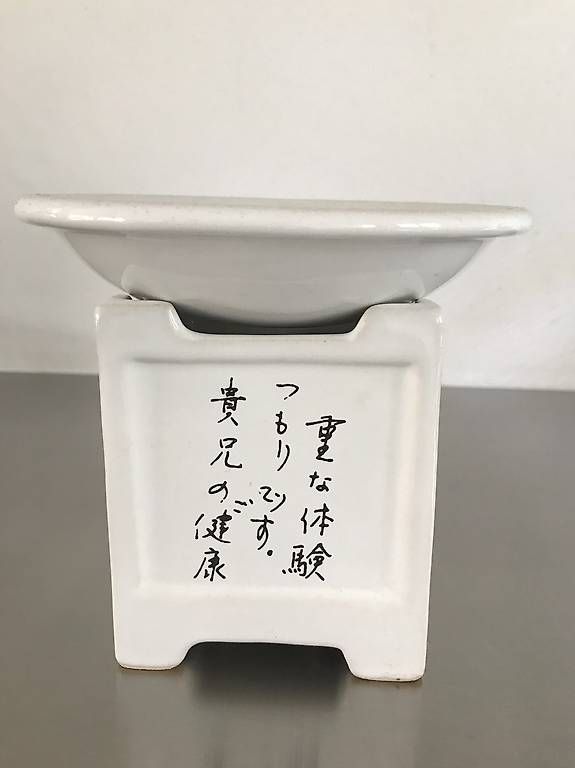 重な体験
つもりです。
貴兄のご健康